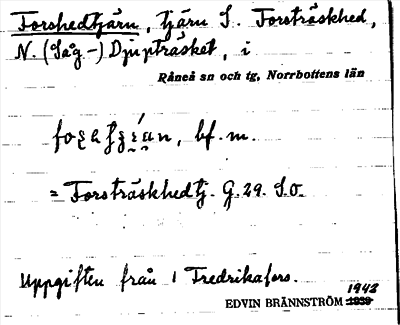 Forshedtjärn, tjärn S. Forsträskhed,
N. (Såg-) Djupträsket, i
Råneå sn och tg, Norrbottens län
bf. m.
= Forsträskhedtj. G.29. S.O.
Uppgiften från 1 Fredrikafors.
1943
EDVIN BRÄNNSTRÖM 1939